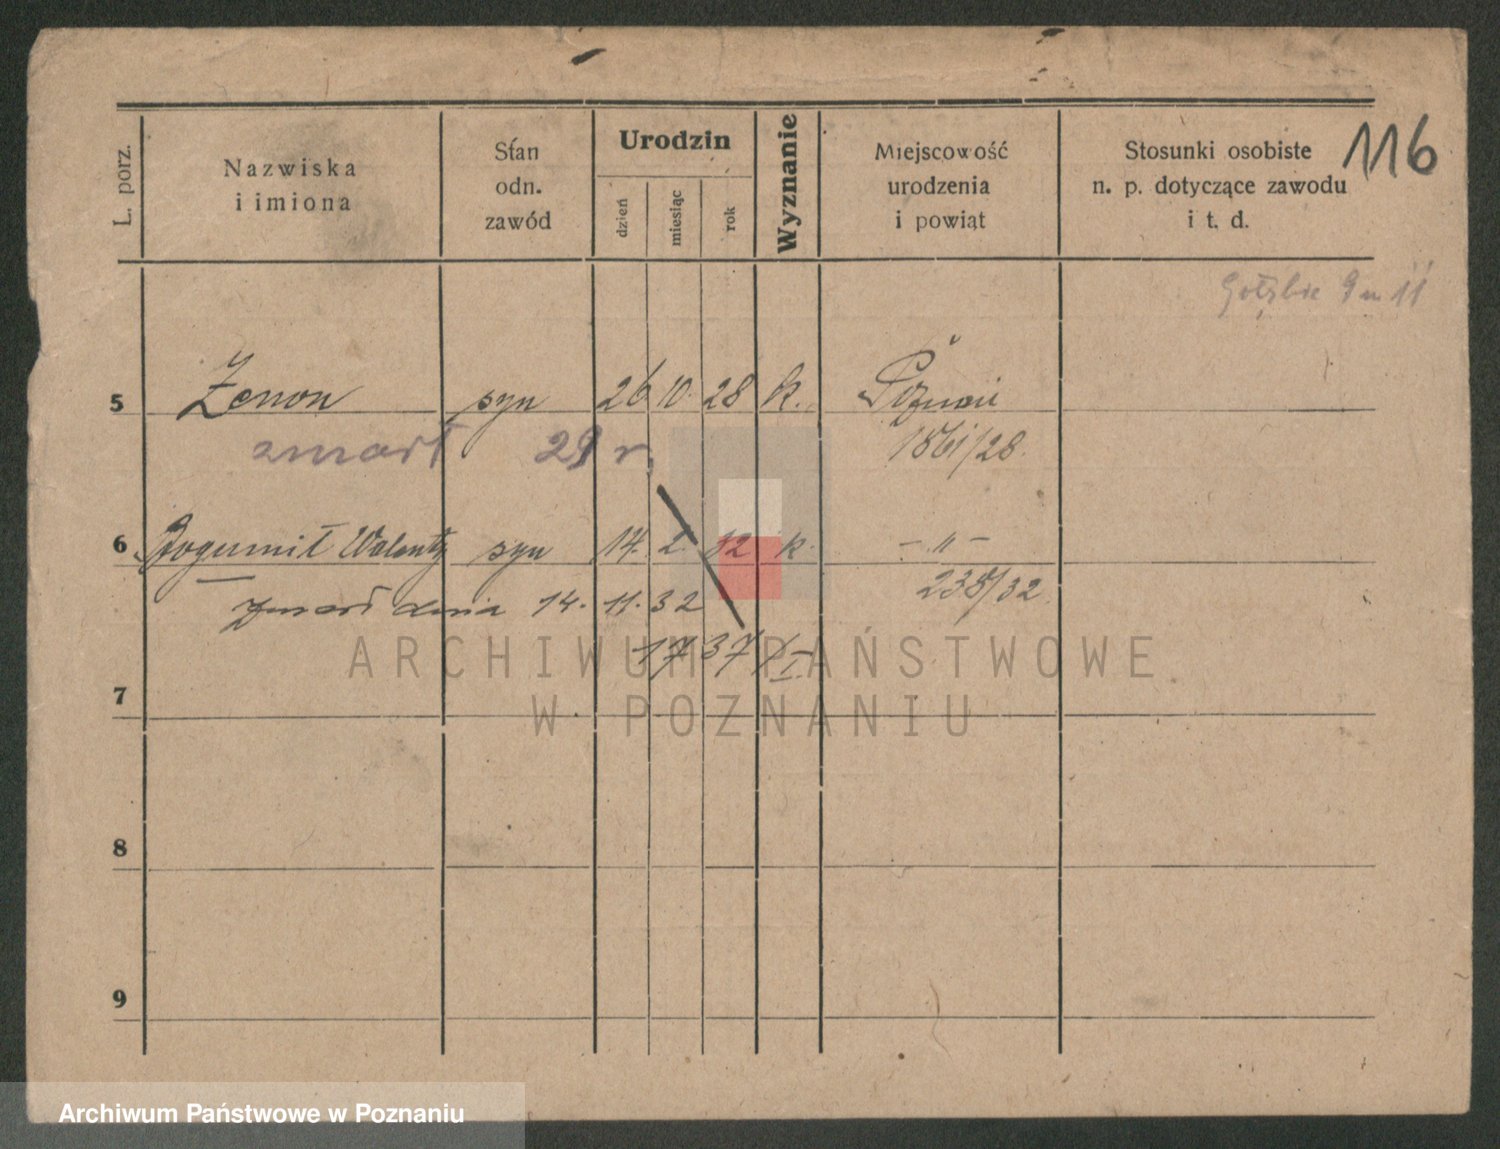 116
L. porz.
Nazwiska
i imiona
Stan
odn.
zawód
Urodzin
dzień
miesiąc
rok
Wyznanie
Miejscowość
urodzenia
i powiąt
Stosunki osobiste
n. p. dotyczące zawodu
i t. d.
9 m 11
5 Zenon syn 26 10. 28 k. Poznań
zmarł 29 r.
1861/28.
6 Bogumił Walenty syn 14. 2. 32 k. – " –
zmarł dnia 14. 11. 32
238/32
1737/I
7
8
9
ARCHIWUM PAŃSTWOWE
W POZNANIU
Archiwum Państwowe w Poznaniu